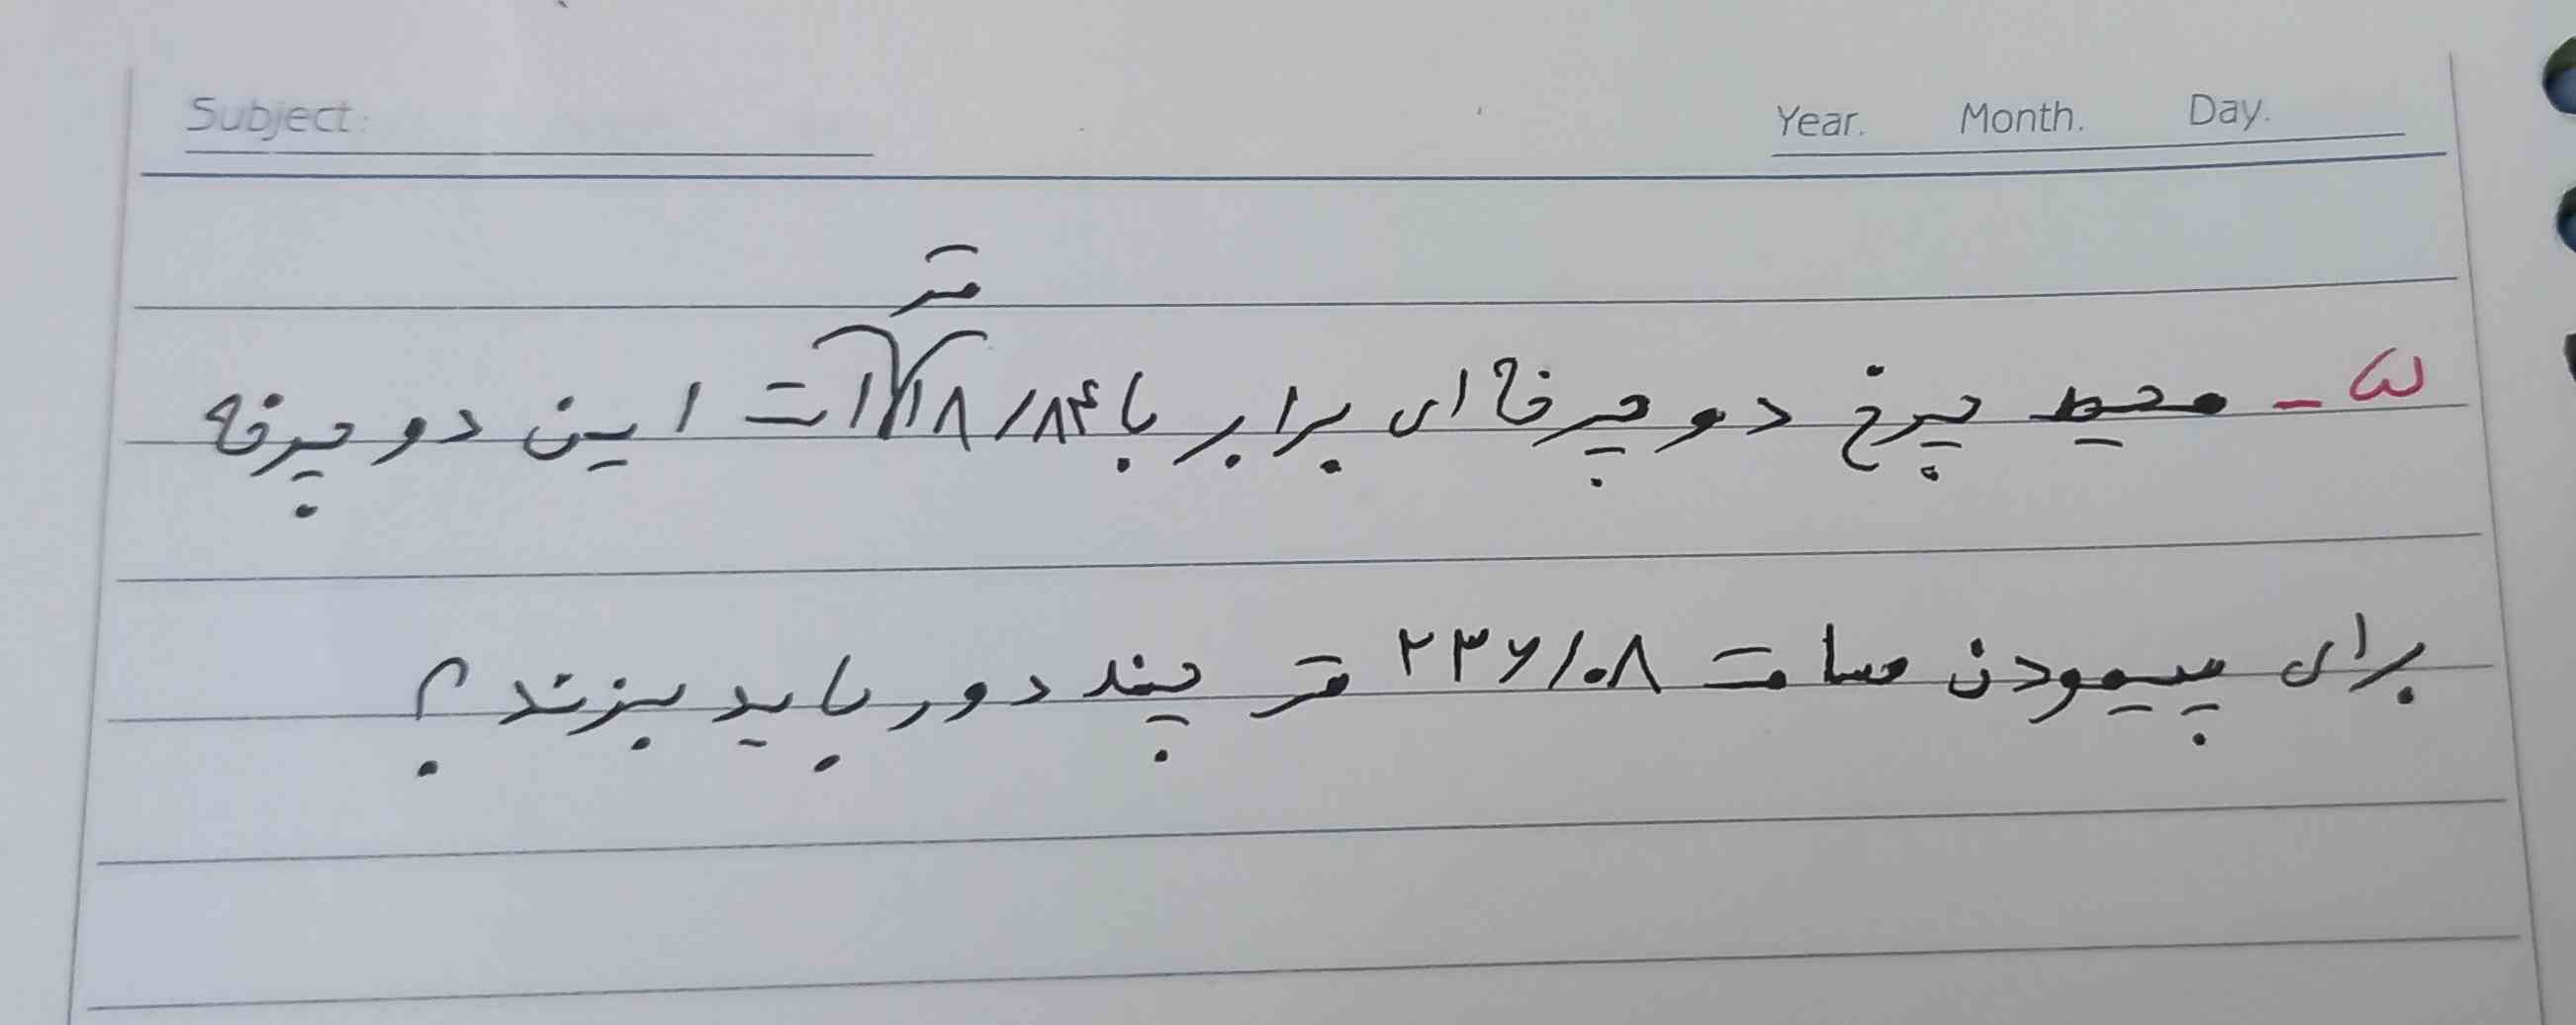 Subject: Year. Month. Day.
متر
۵ - محیط چرخ دوچرخه ای برابر با ۱۸/۸۴ است این دوچرخه
برای پیمودن مسافت ۲۳۶/۰۸ متر چند دور باید بزند؟